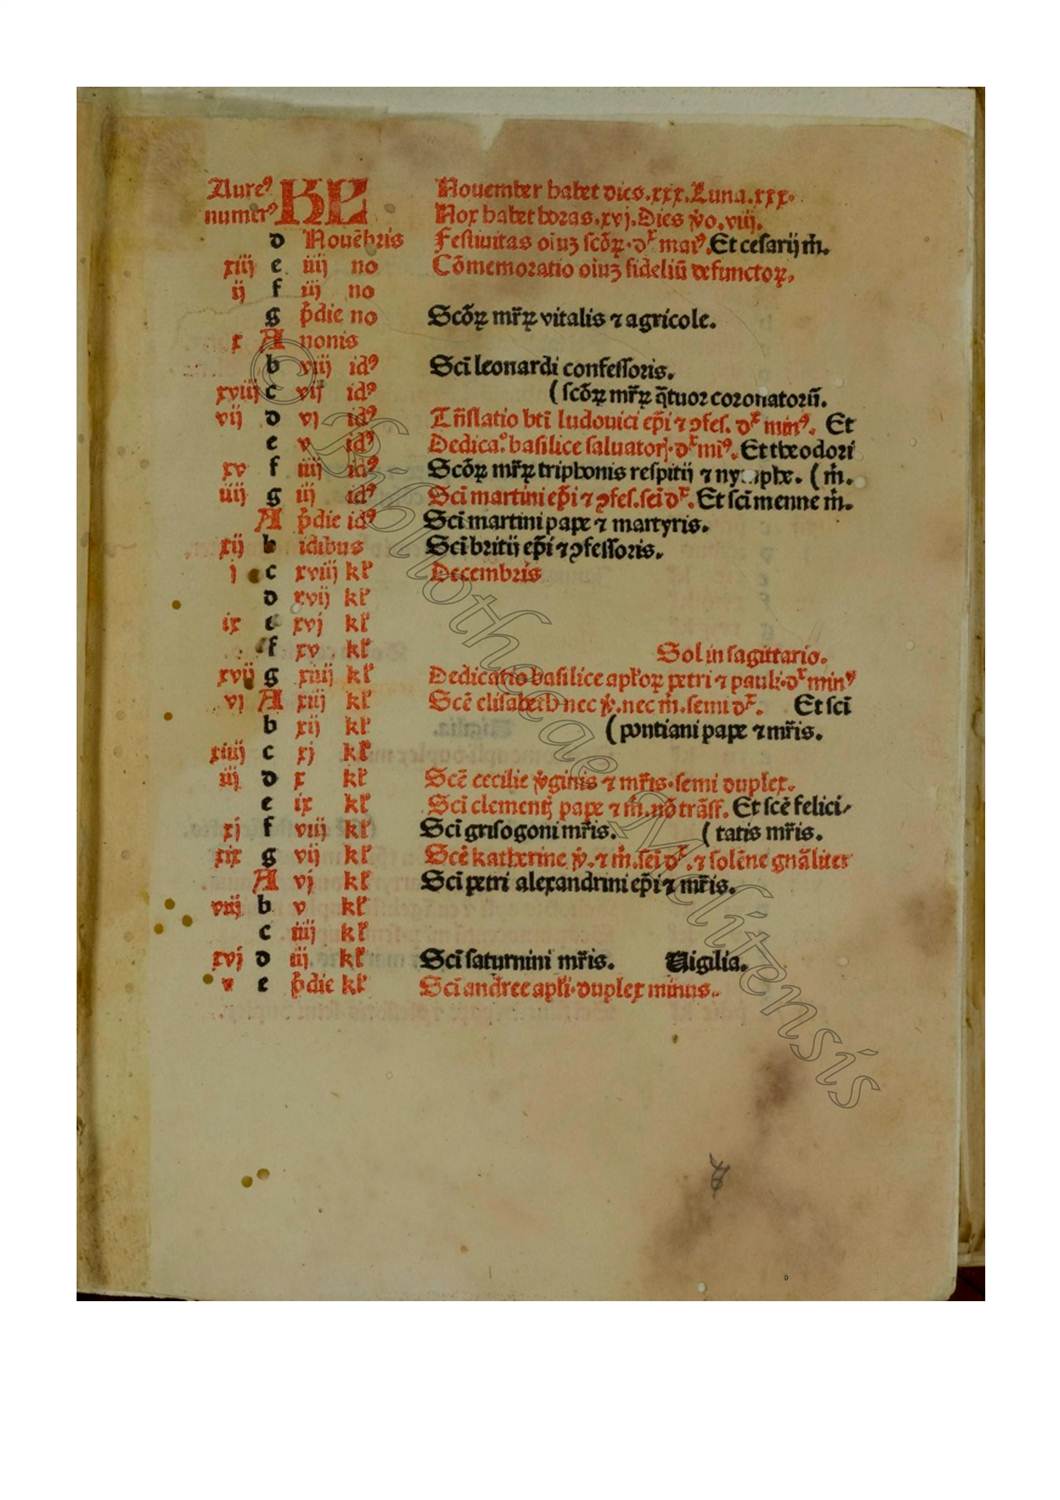 Aureꝰ KL Nouember habet dies.xxx.Luna.xxx.
numerꝰ Nox habet horas.xvj.Dies v̓o.viij.
d Nouēbris Festiuitas oīuꝫ scōꝝ.dr̄ maiꝰ.Et cesarij m̄.
xiij e iiij no Cōmemoratio oīuꝫ fideliū defunctoꝝ.
ij f iij no
g p̄die no Scōꝝ mr̄ꝝ vitalis ⁊ agricole.
x A nonis
b viij idꝰ Scī leonardi confessoris.
xviij c vij idꝰ (scōꝝ mr̄ꝝ q̄tuor coronatorū.
vij d vj idꝰ Trāslatio btī ludouici ep̄i ⁊ ꝯfes. dr̄ minꝰ. Et
e v idꝰ Dedica.ꝰ basilice saluatorꝭ.dr̄ miꝰ.Et theodori
xv f iiij idꝰ Scōꝝ mr̄ꝝ triphonis respitij ⁊ nymphe. (m̄.
iiij g iij idꝰ Scī martini ep̄i ⁊ ꝯfes.sei dr̄. Et scī menne m̄.
A p̄die idꝰ Scī martini pape ⁊ martyris.
xij b idibus Scī britij ep̄i ⁊ ꝯfessoris.
j c xviij kl̄ Decembris
d xvij kl̄
ix e xvj kl̄
f xv kl̄ Sol in sagittario.
xvij g xiiij kl̄ Dedicatio basilice apl̄oꝝ petri ⁊ pauli.dr̄ minꝰ
vj A xiij kl̄ Scē elisabeth nec v̓.nec m̄.semi dr̄. Et scī
b xij kl̄ (pontiani pape ⁊ mr̄is.
xiiij c xj kl̄
iij d x kl̄ Scē cecilie v̓ginis ⁊ mr̄is.semi duplex.
e ix kl̄ Scī clementꝭ pape ⁊ m̄.nō trāsf. Et scē felici⸗
xj f viij kl̄ Scī grisogoni mr̄is. (tatis mr̄is.
xix g vij kl̄ Scē katherine v̓.⁊ m̄.sei dr̄.⁊ solēne gnāliter
A vj kl̄ Scī petri alexandrini ep̄i ⁊ mr̄is.
viij b v kl̄
c iiij kl̄
xvj d iij. kl̄ Scī saturnini mr̄is. Vigilia.
v e p̄die kl̄ Scī andree apl̄i.duplex minus.
© Bibliothecae Melitensis